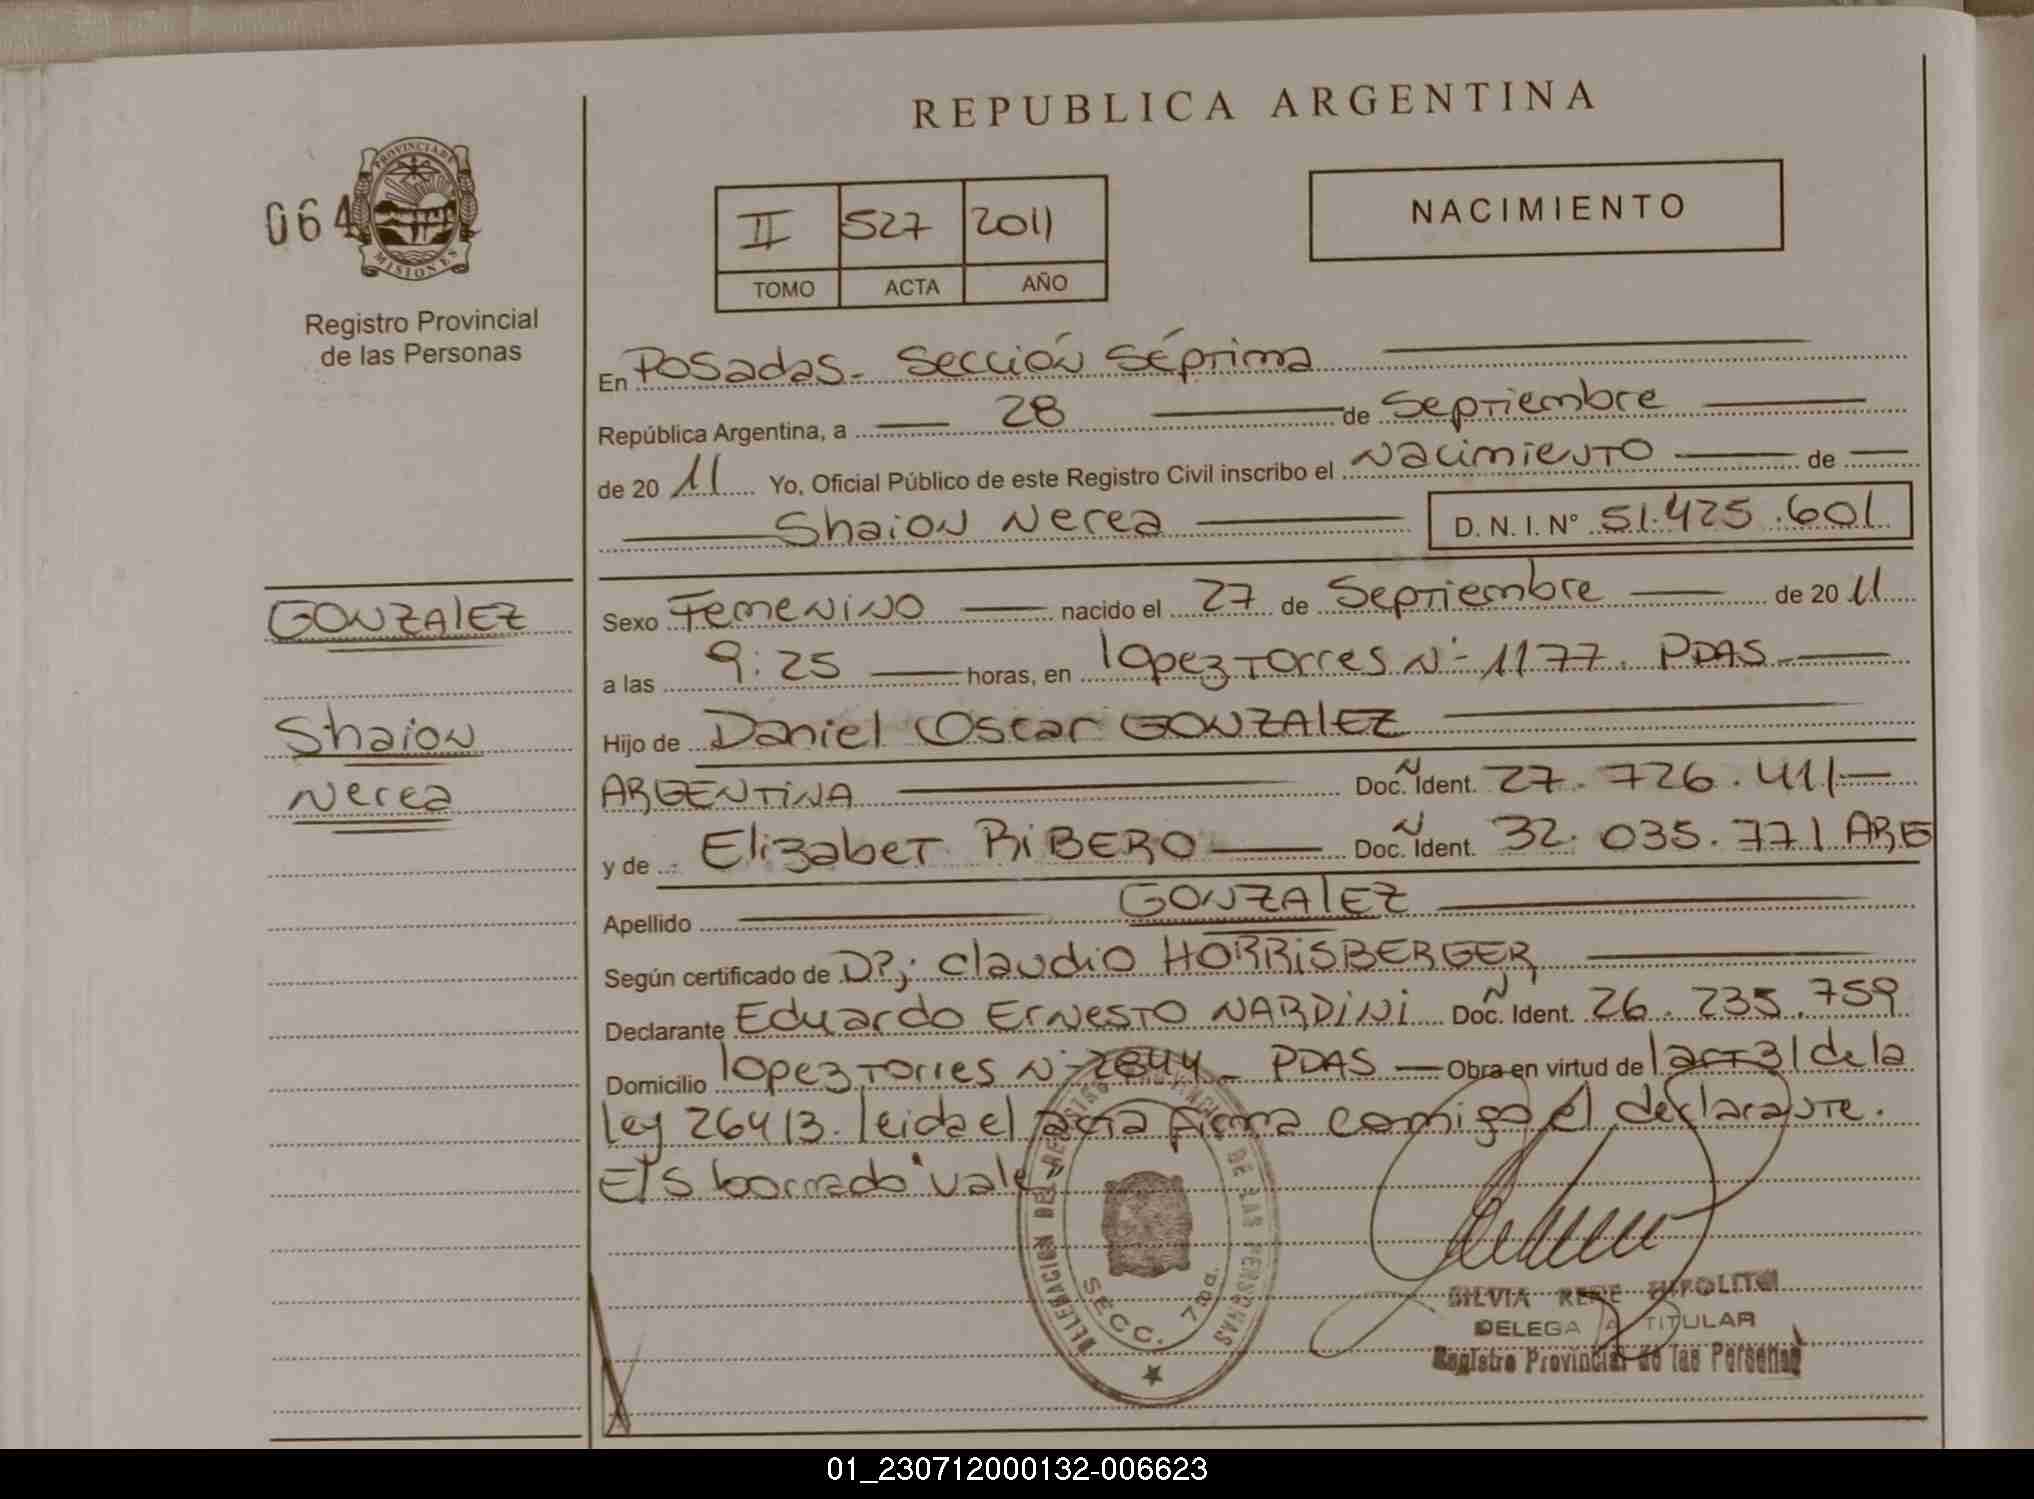 REPUBLICA ARGENTINA
064
PROVINCIA DE
MISIONES
Registro Provincial
de las Personas
II 527 2011
TOMO ACTA AÑO
NACIMIENTO
En Posadas - Sección Séptima
República Argentina, a 28 de Septiembre
de 20 11 Yo, Oficial Público de este Registro Civil inscribo el Nacimiento de
Shaion Nerea D. N. I. N° 51.425.601
GONZALEZ
Shaion
Nerea
Sexo Femenino nacido el 27 de Septiembre de 20 11
a las 9:25 horas, en lopez Torres N- 1177. PDAS -
Hijo de Daniel Oscar GONZALEZ
ARGENTINA Doc. N Ident. 27.726.411
y de Elizabet RiBERO Doc. N Ident. 32.035.771 ARG
Apellido GONZALEZ
Según certificado de Dr; Claudio HORRISBERGER
Declarante Eduardo Ernesto NARDINI Doc. N Ident. 26.235.759
Domicilio lopez Torres N- 2844 - PDAS Obra en virtud de l art 31 de la
ley 26413. leida el acta firma comigo el declarante.
E/S borrado vale
DELEGACION DEL REGISTRO PROVINCIAL DE LAS PERSONAS
SECC. 7ma.
SILVIA RENE HIPOLITO
DELEGADA TITULAR
Registro Provincial de las Personas
01_230712000132-006623